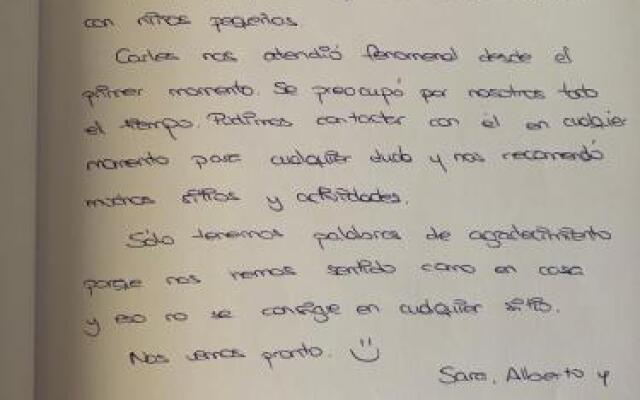 con niños pequeños.
Carlos nos atendió fenomenal desde el
primer momento. Se preocupó por nosotros todo
el tiempo. Pudimos contactar con él en cualquier
momento para cualquier duda y nos recomendó
muchos sitios y actividades.
Sólo tenemos palabras de agradecimiento
porque nos hemos sentido como en casa
y eso no se consige en cualquier sitio.
Nos vemos pronto.
Sara, Alberto y